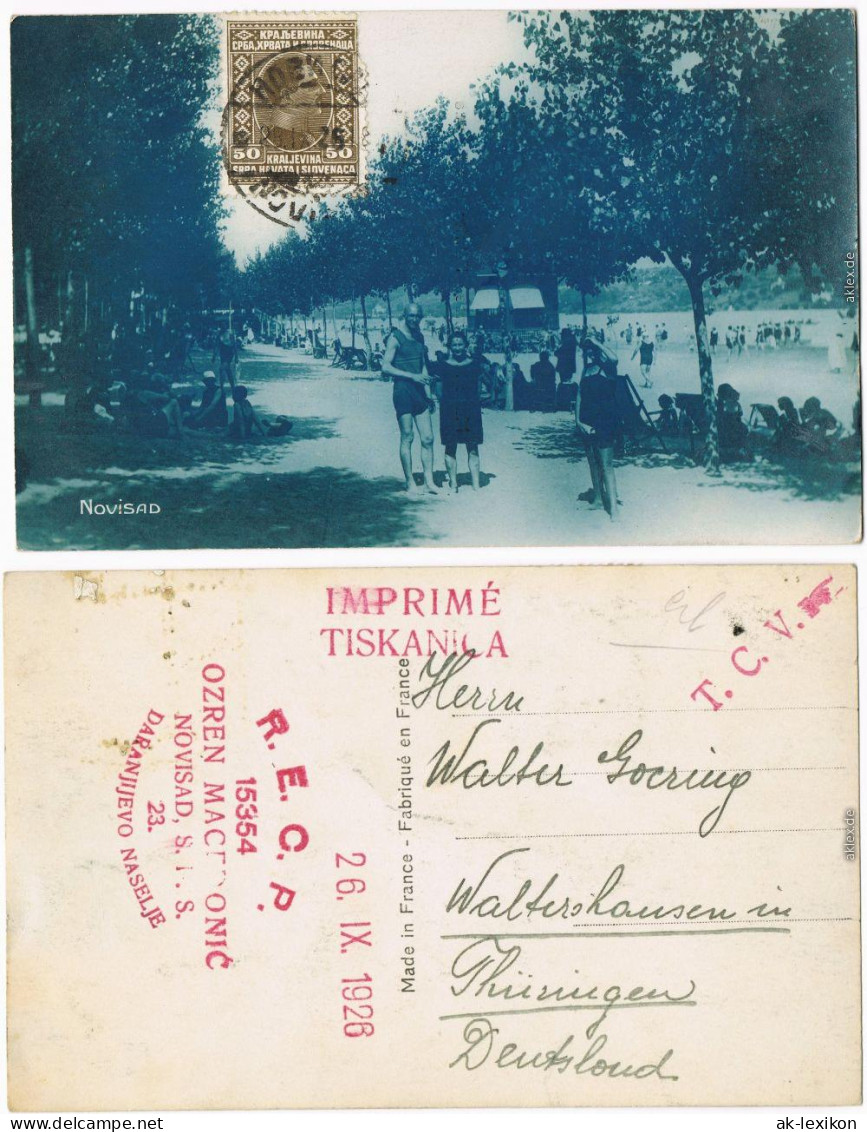 КРАЉЕВИНА
СРБА, ХРВАТА И СЛОВЕНАЦА
50 50
KRALJEVINA
SRBA HRVATA I SLOVENACA
NOVISAD
aklex.de
IMPRIMÉ
TISKANICA
T. C. V.
R. E. C. P.
15354
OZREN
NOVISAD,
23.
DARANJIJEVO NASELJE
26. IX. 1928
Made in France - Fabriqué en France
Herrn
Walter Goering
Waltershausen in
Thüringen
Deutsland
aklex.de
www.delcampe.net
ak-lexikon